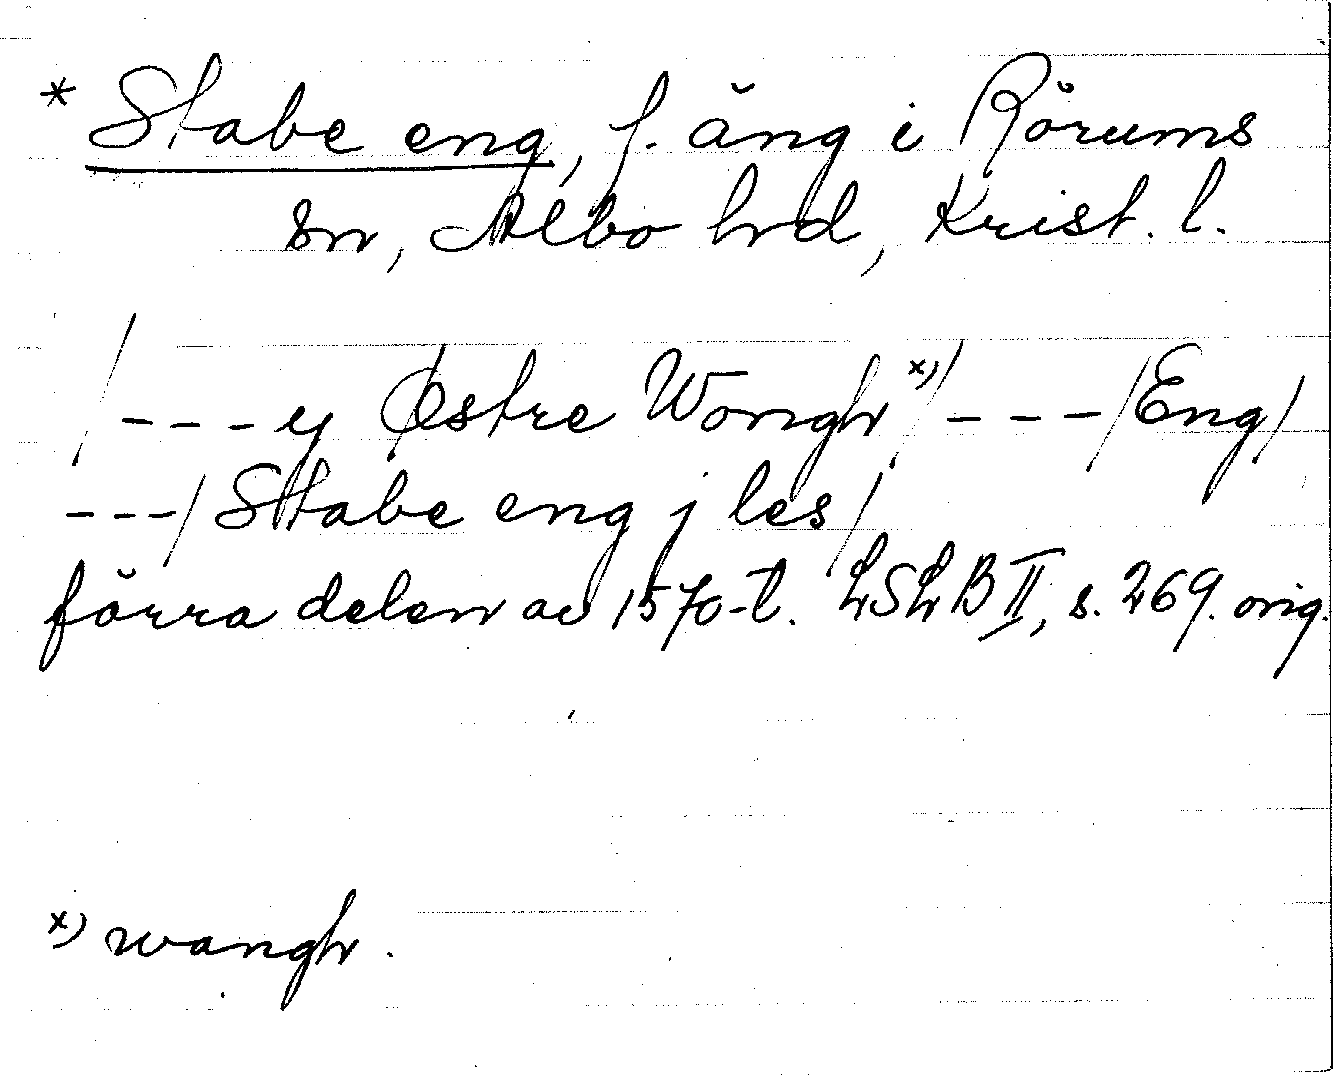 * Stabe eng, f. äng i Rörums
sn, Albo hrd, Krist. l.
/---y Østre Wongh x)/---/Eng/
---/Stabe eng j les/
förra delen av 1570-t. LSLB II, s. 269. orig.
x) wangh.